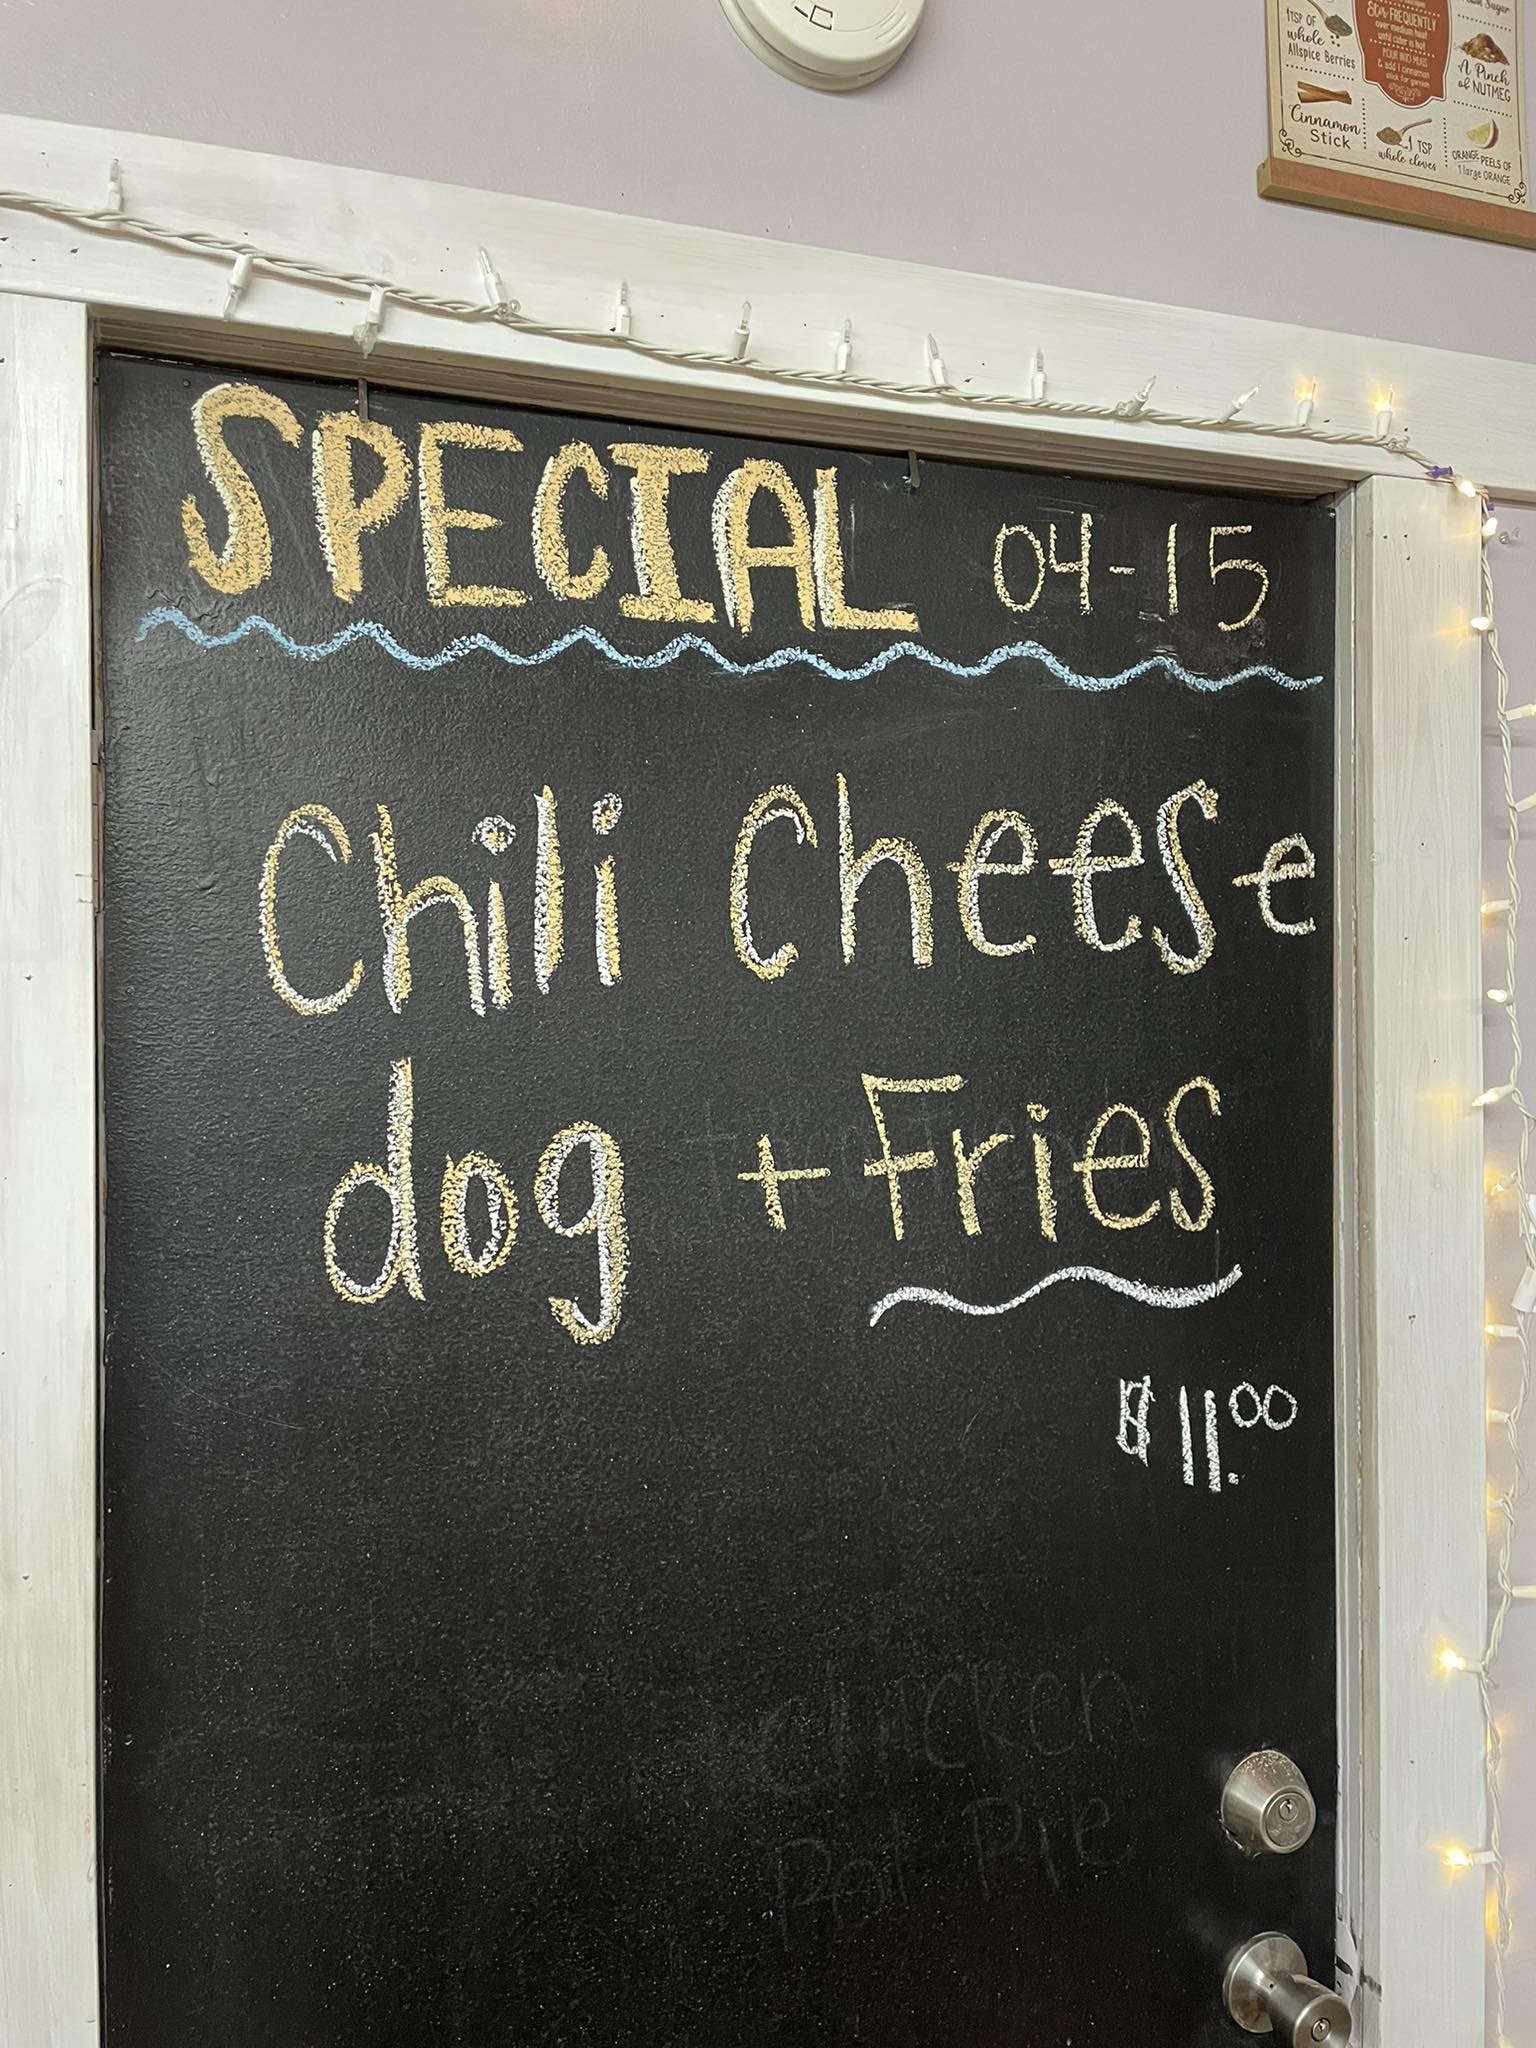 1TSP OF
whole
Allspice Berries
Cinnamon
Stick
Stir FREQUENTLY
over medium heat
until cider is hot
POUR INTO MUGS
& add 1 cinnamon
stick for garnish
1 TSP
whole cloves
A Pinch
of NUTMEG
ORANGE PEELS OF
1 large ORANGE
SPECIAL 04-15
Chili Cheese
dog + Fries
$11.00
chicken
Pot Pie